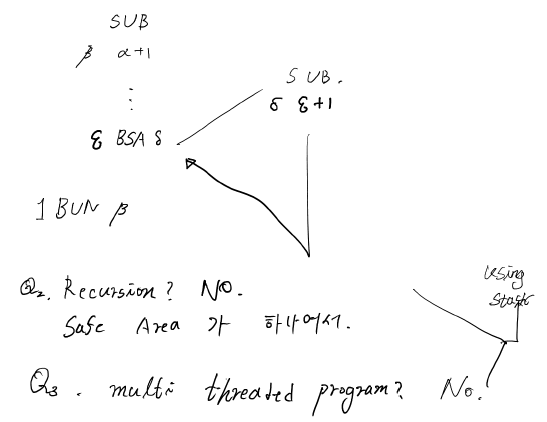 SUB
β α+1
⋮
ξ BSA δ
SUB.
δ ξ+1
1 BUN β
Q2. Recursion? NO.
Safe Area 가 하나여서.
Using
Stack
Q3. multi threaded program? No.